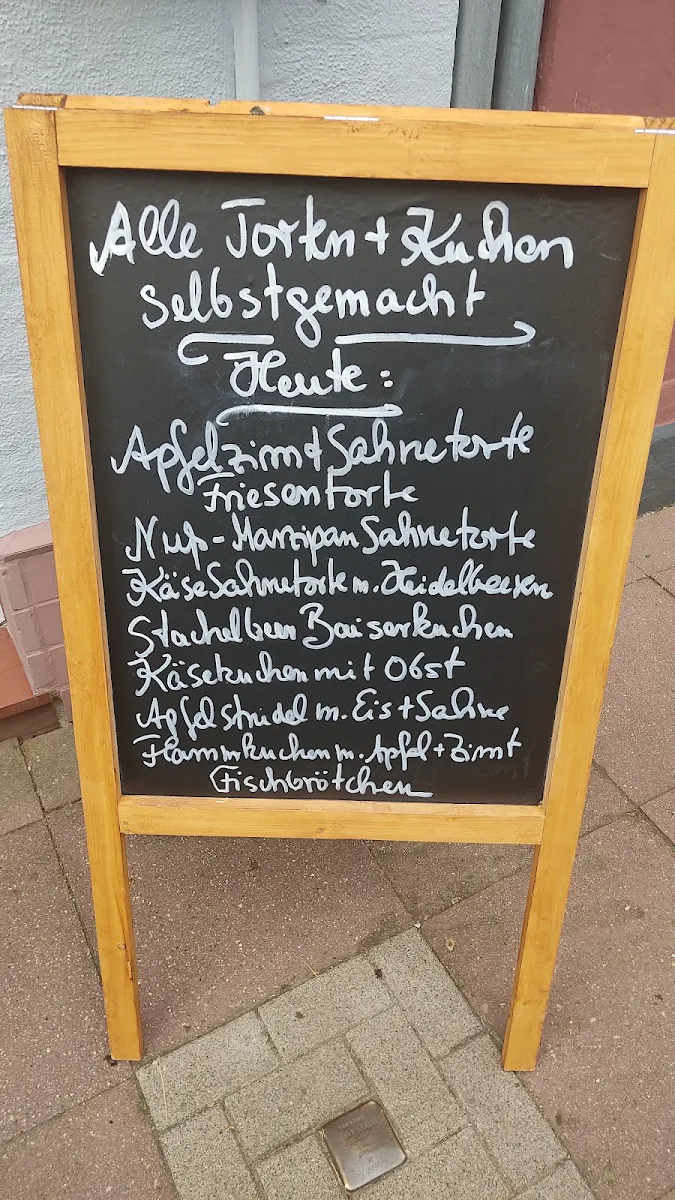 Alle Torten + Kuchen
selbstgemacht
Heute:
Apfelzimt Sahnetorte
Friesentorte
Nuß-Marzipan Sahnetorte
KäseSahnetorte m. Heidelbeeren
Stachelbeer Baiserkuchen
Käsekuchen mit Obst
Apfelstrudel m. Eis + Sahne
Flammkuchen m. Apfel + Zimt
Fischbrötchen